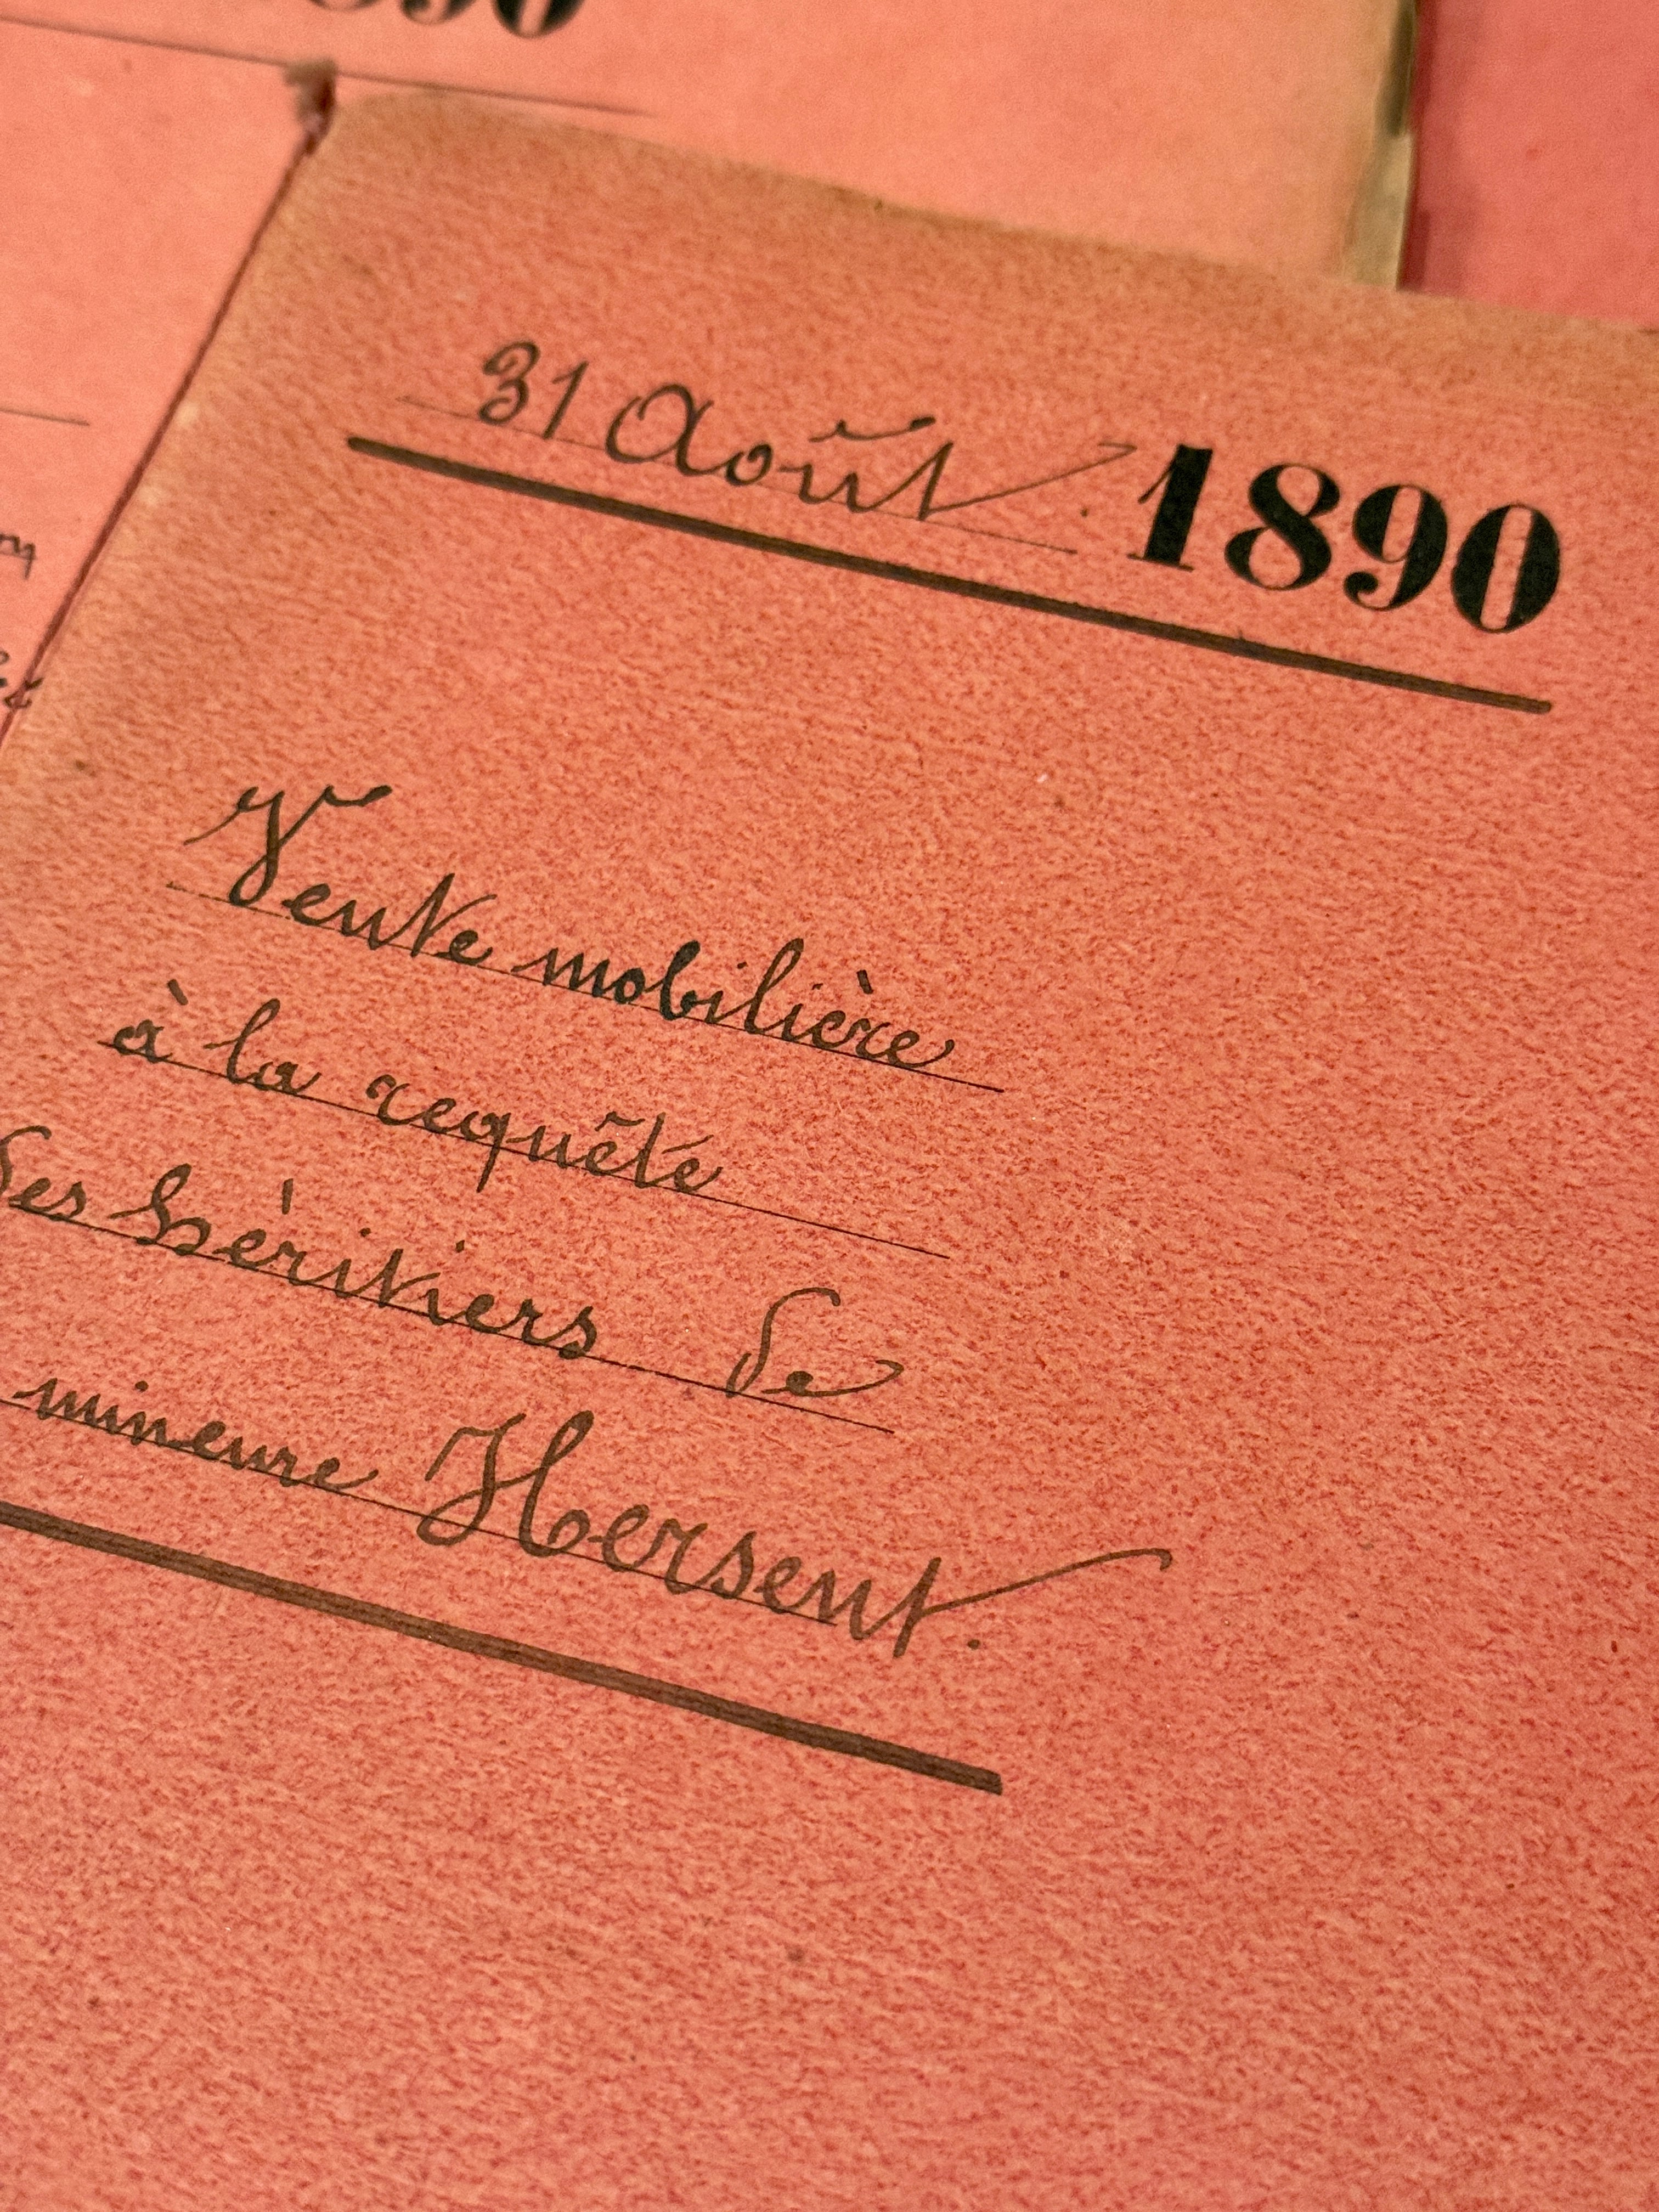 890
31 Août . 1890
Vente mobilière
à la requête
des héritiers de
mineure Hersent.